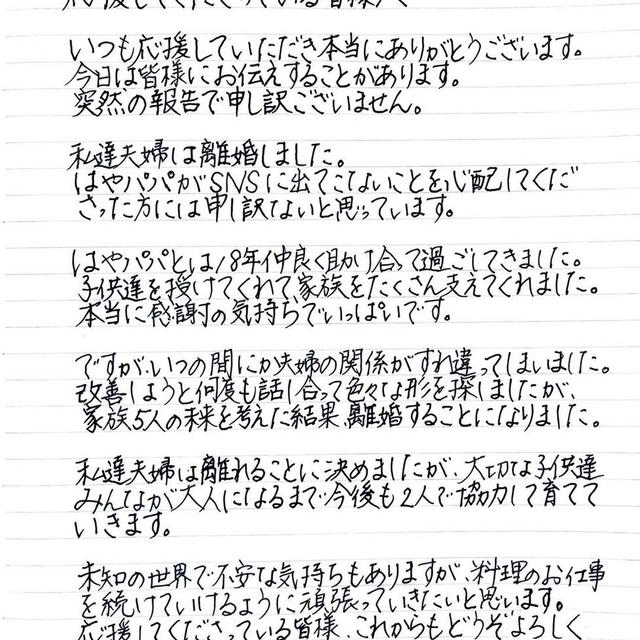 応援してくださっている皆様へ
いつも応援していただき本当にありがとうございます。
今日は皆様にお伝えすることがあります。
突然の報告で申し訳ございません。
私達夫婦は離婚しました。
はやパパがSNSに出てこないことを心配してくだ
さった方には申し訳ないと思っています。
はやパパとは18年仲良く助け合って過ごしてきました。
子供達を授けてくれて、家族をたくさん支えてくれました。
本当に感謝の気持ちでいっぱいです。
ですが、いつの間にか夫婦の関係がすれ違ってしまいました。
改善しようと何度も話し合って色々な形を探しましたが、
家族5人の未来を考えた結果、離婚することになりました。
私達夫婦は離れることに決めましたが、大切な子供達
みんなが大人になるまで今後も2人で協力して育てて
いきます。
未知の世界で不安な気持ちもありますが、料理のお仕事
を続けていけるように頑張っていきたいと思います。
応援してくださっている皆様、これからもどうぞよろしく